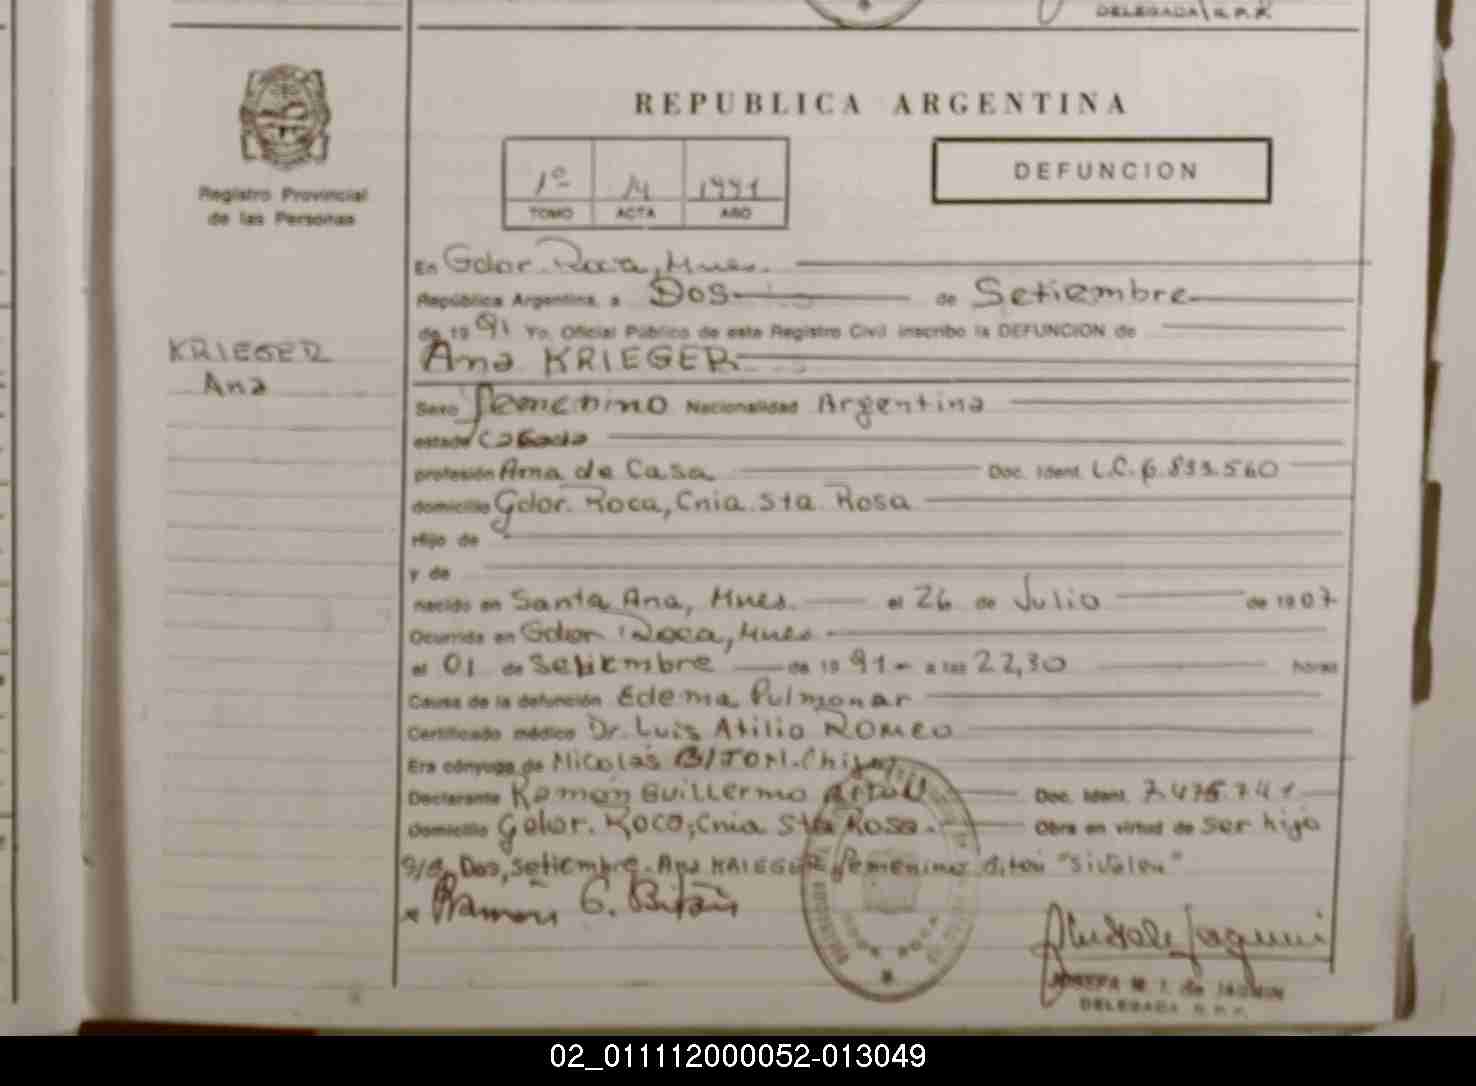 DELEGADA R.P.P.
REPUBLICA ARGENTINA
Registro Provincial
de las Personas
1º 14 1991
TOMO ACTA AÑO
DEFUNCION
KRIEGER
Ana
En Gdor. Roca, Mnes.
República Argentina, a Dos de Setiembre
de 1991 Yo, Oficial Público de este Registro Civil inscribo la DEFUNCION de
Ana KRIEGER
Sexo femenino Nacionalidad Argentina
estado casada
profesión Ama de Casa Doc. Ident. L.C. 6.833.560
domicilio Gdor. Roca, Cnia. Sta. Rosa
Hijo de
y de
nacido en Santa Ana, Mnes. el 26 de Julio de 1907
Ocurrida en Gdor Roca, Mnes
el 01 de Setiembre de 1991 a las 22,30 horas
Causa de la defunción Edema Pulmonar
Certificado médico Dr. Luis Atilio ROMEO
Era cónyuge de Nicolás BITON.
Declarante Ramón Guillermo Doc. Ident. 7.475.741
domicilio Gdor. Roca, Cnia Sta Rosa. Obra en virtud de ser hijo
S/B, Dos, Setiembre. Ana KRIEGER, femenino "Sivalen"
Ramón G.
JOSEFA M. I. de
DELEGADA R.P.P.
02_011112000052-013049